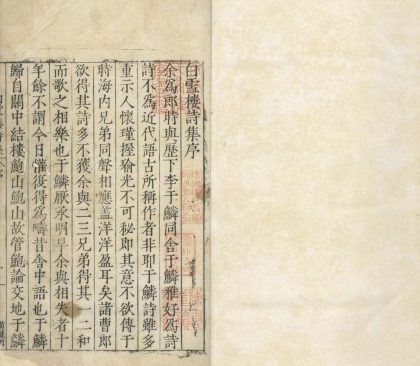 白雪樓詩集序
余為郎時與歷下李于鱗同舍于鱗雅好為詩
詩不為近代語古所稱作者非耶于鱗詩雖多
重示人懷瑾握瑜光不可秘即其意不欲傳于
時海内兄弟同聲相應蓋洋洋盈耳矣諸曹郎
欲得其詩多不獲余與二三兄弟得其一二和
而歌之相樂也于鱗厭承明早余與相失者十
年餘不謂今日復得為疇昔舍中語也于鱗
歸自關中結樓鮑山鮑山故管鮑論交地于鱗